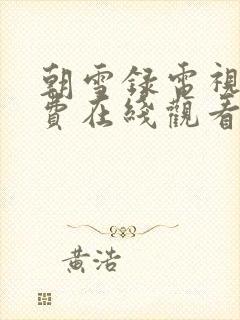 朝雪録電視
費在綫觀看
黃浩